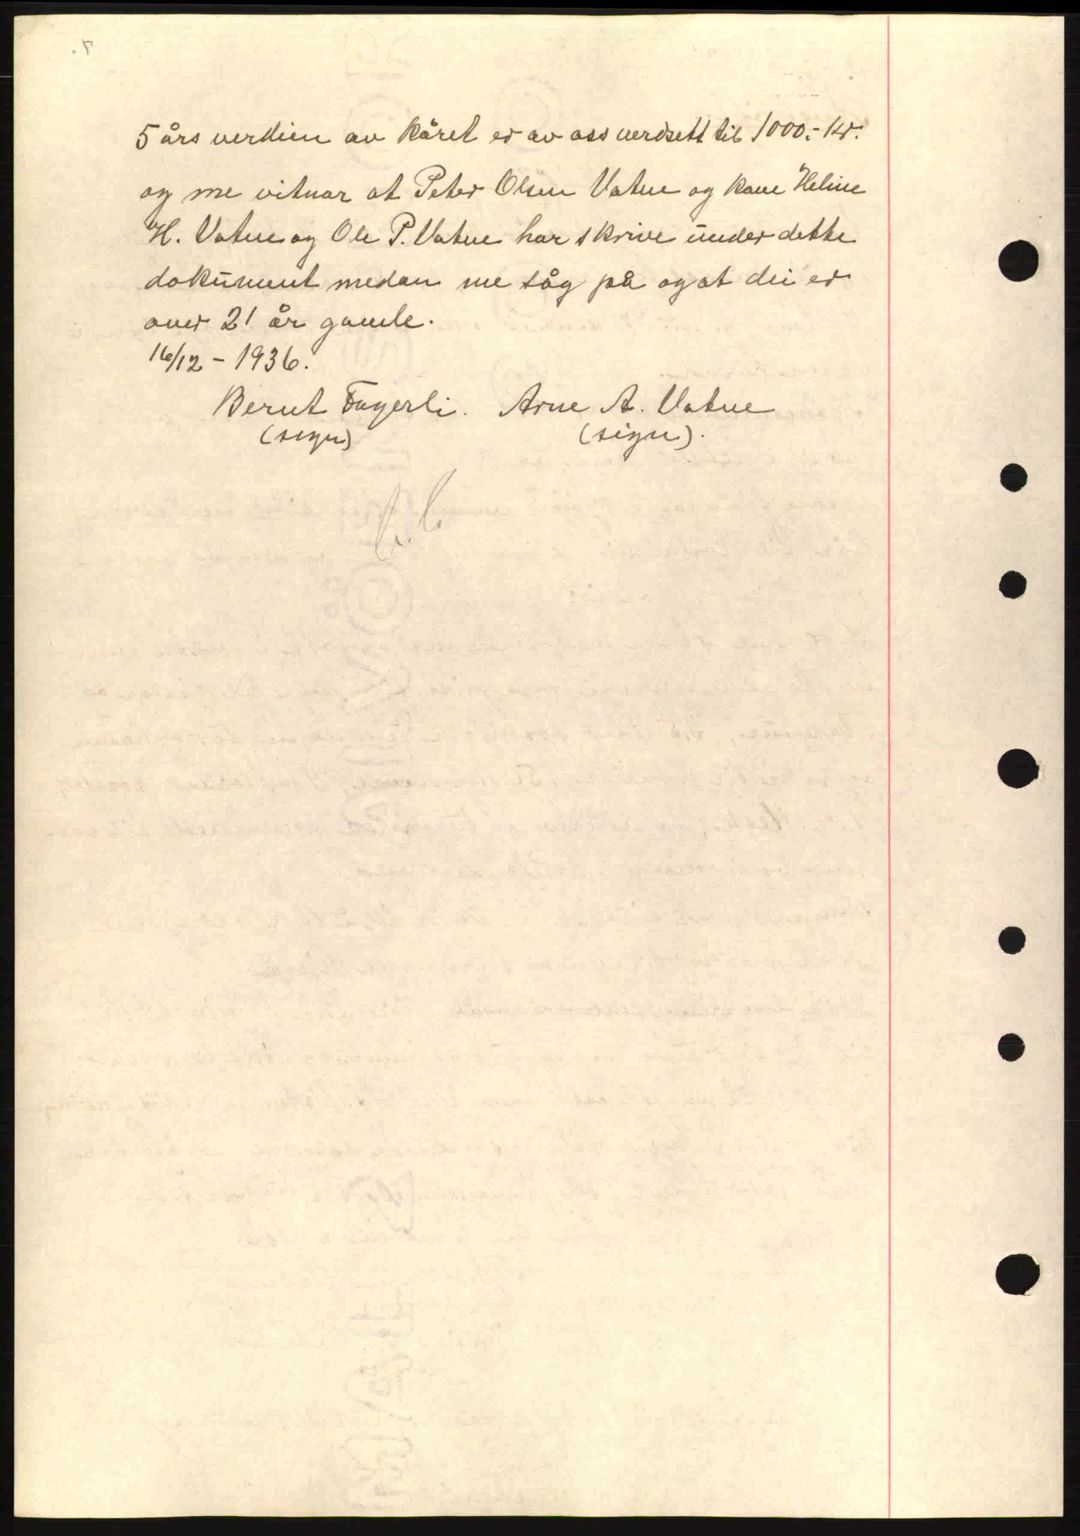 5 års verdien av kåret er av oss verdsett til 1000.- Kr.
og me vitnar at Peter Olsen Vatne og kone Heline
H. Vatne og Ole P. Vatne har skrive under dette
dokument medan me såg på og at dei er
over 21 år gamle.
16/12 - 1936.
Bernt Fagerli. Arne A. Vatne
(sign) (sign).